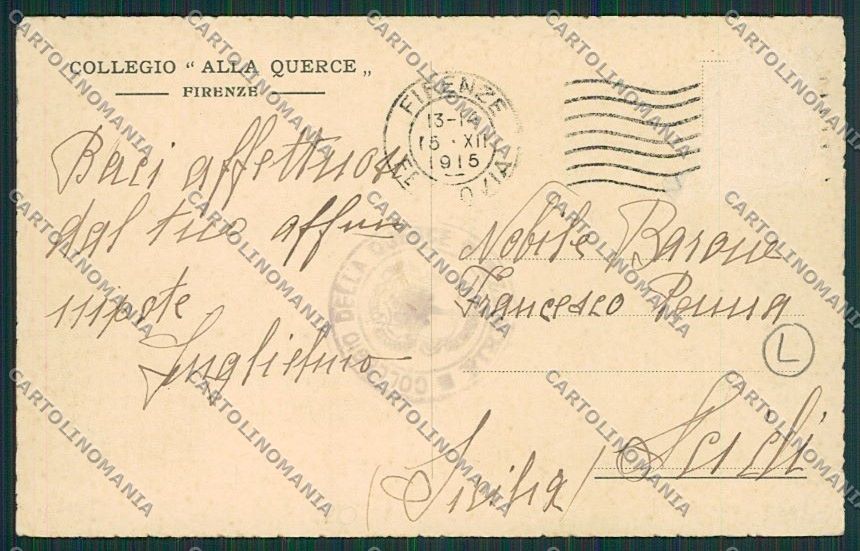 COLLEGIO “ ALLA QUERCE „
FIRENZE
FIRENZE
13-14
15 · XII
1915
Baci affettuosi
dal tuo affmo
nipote
Guglielmo
Nobile Barone
Francesco Penna
Scicli
(Sicilia)
L
COLLEGIO DELLA QUERCE
CARTOLINOMANIA